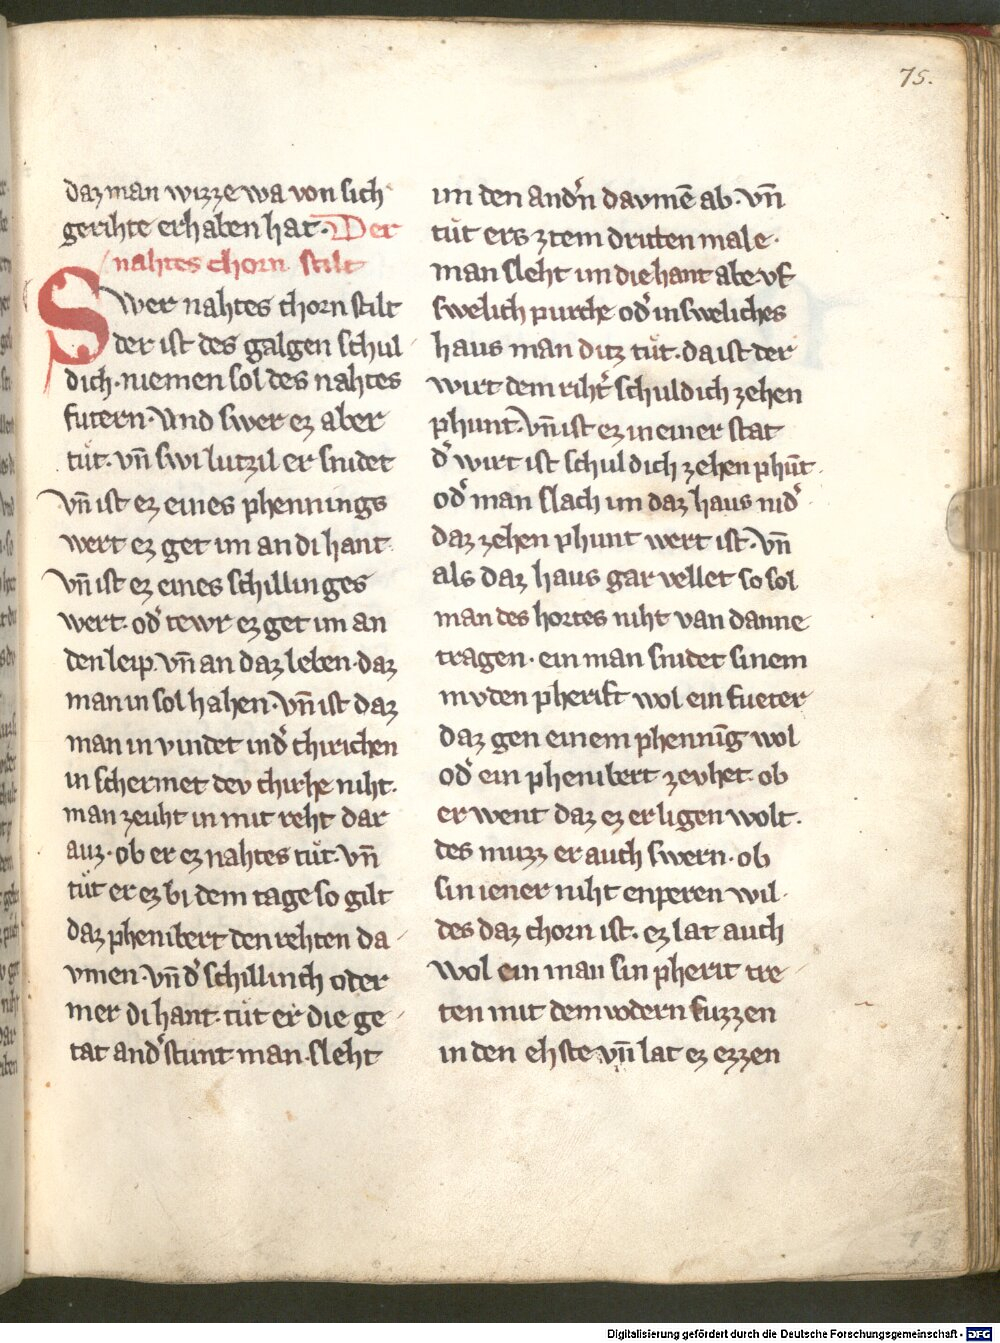 75.
daz man wizze wa von sich
gerihte erhaben hat. Der
nahtes chorn stilt
Swer nahtes chorn stilt
der ist des galgen schul
dich. niemen sol des nahtes
futern. Und swer ez aber
tut. vn̄ swi lutzil er snidet
vn̄ ist ez eines phennings
wert ez get im an di hant.
vn̄ ist ez eines schillinges
wert. od᾽ tewr ez get im an
den leip. vn̄ an daz leben. daz
man in sol hahen. vn̄ ist daz
man in vindet in d᾽ chirichen
in schermet dev chirhe niht.
man zeuht in mit reht dar
auz. ob er ez nahtes tůt. vn̄
tůt er ez bi dem tage so gilt
daz phenibert den rehten da
vmen. vn̄ d᾽ schillinch oder
mer di hant. tůt er die ge
tat and᾽stunt man sleht
im den and᾽n davmē ab. vn̄
tůt ers ztem dritten male.
man sleht im die hant abe vf
swelich purche od᾽ in sweliches
haus man ditz tůt. da ist der
wirt dem riht᾽ schuldich zehen
phunt. vn̄ ist ez in einer stat
d᾽ wirt ist schuldich zehen phūt.
od᾽ man slach im daz haus nid᾽
daz zehen phunt wert ist. vn̄
als daz haus gar vellet so sol
man des hortes niht van danne
tragen. ein man snidet sinem
mvden pherift wol ein fueter
daz gen einem phennīg wol
od᾽ ein phenibert zevhet. ob
er went daz ez erligen wolt.
des muzz er auch swern. ob
sin iener niht enperen wil.
des daz chorn ist. ez lat auch
wol ein man sin pherit tre
ten mit dem vodern fuzzen
in den ehste vn̄ lat ez ezzen
Digitalisierung gefördert durch die Deutsche Forschungsgemeinschaft - DFG